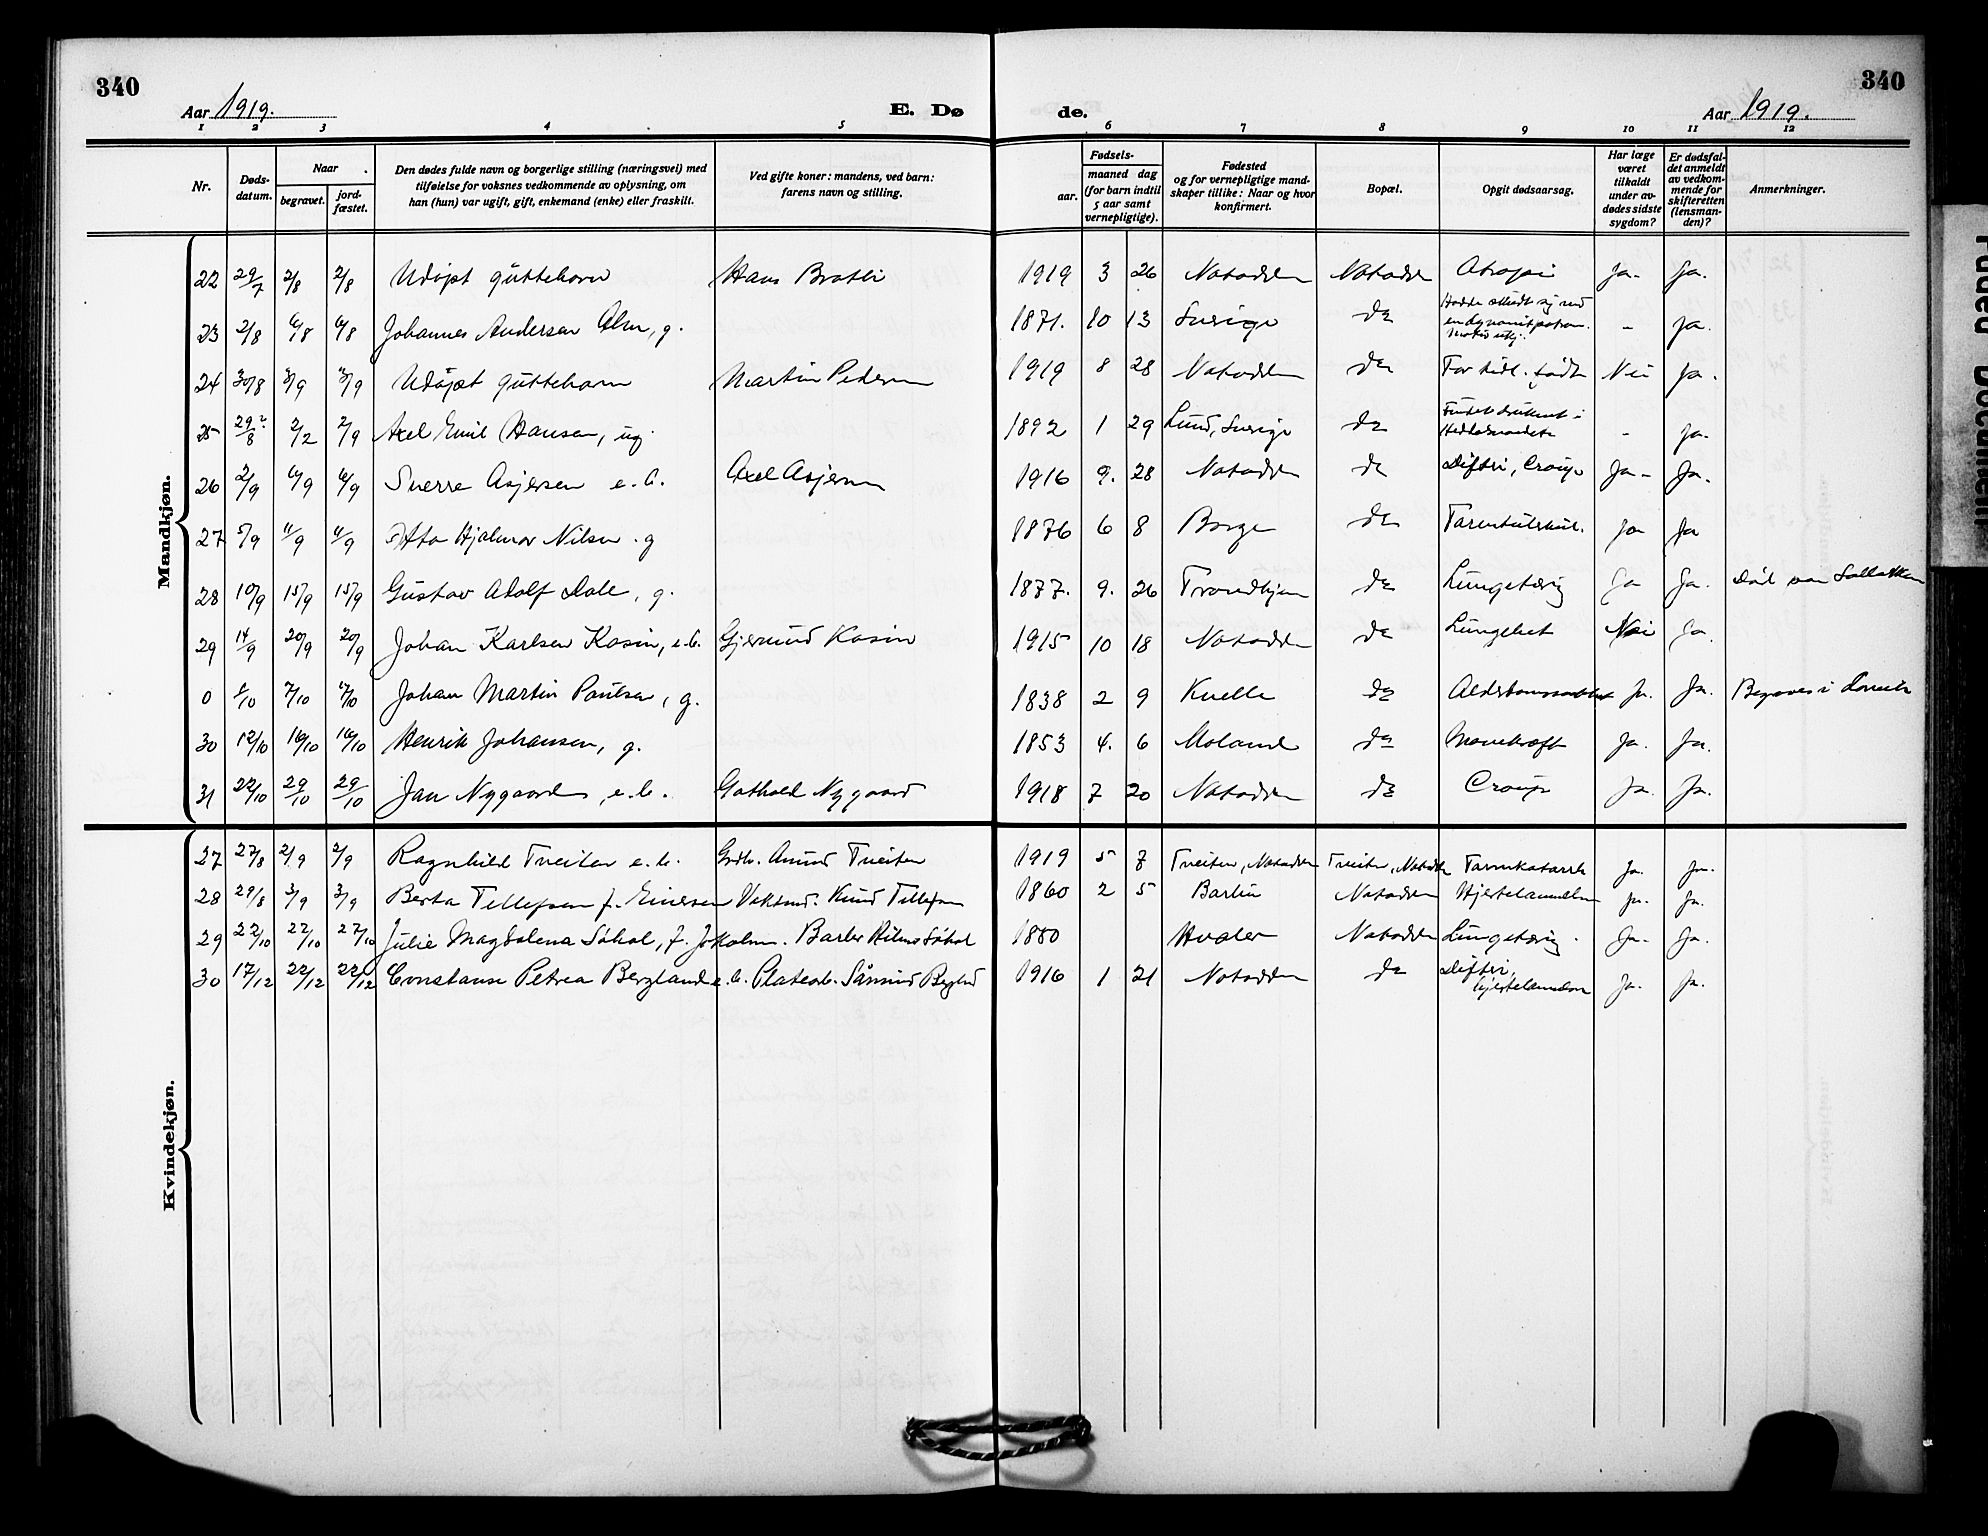 340
340
Aar 1919.
E. Dø
de.
Aar 1919.
1 2 3 4 5 6 7 8 9 10 11 12
Nr.
Døds-
datum.
Naar
begravet.
jord-
fæstet.
Den dødes fulde navn og borgerlige stilling (næringsvei) med
tilføielse for voksnes vedkommende av oplysning, om
han (hun) var ugift, gift, enkemand (enke) eller fraskilt.
Ved gifte koner: mandens, ved barn:
farens navn og stilling.
Fødsels-
aar.
maaned dag
(for barn indtil
5 aar samt
vernepligtige).
Fødested
og for vernepligtige mand-
skaper tillike: Naar og hvor
konfirmert.
Bopæl.
Opgit dødsaarsag.
Har læge
været
tilkaldt
under av-
dødes sidste
sygdom?
Er dødsfal-
det anmeldt
av vedkom-
mende for
skifteretten
(lensman-
den)?
Anmerkninger.
Mandkjøn.
22 29/7 2/8 2/8 Udöpt guttebarn Hans Bratli 1919 3 26 Notodden Notodden Atropi Ja. Ja.
23 2/8 6/8 6/8 Johannes Andersen Alm, g. 1871. 10 13 Sverige do Hadde skudt sig med en dynamitpatron. - ja.
24 30/8 3/9 3/9 Udöpt guttebarn Martin Pedersen 1919 8 28 Notodden do For tidl. født Nei Ja.
25 29/8? 2/2 2/9 Axel Emil Hansen, ug. 1892 1 29 Lund, Sverige do Fundet druknet i - ja.
26 2/9 6/9 6/9 Sverre Asjersen e.b. Axel Asjersen 1916 9. 28 Notodden do Difteri, Croup Ja- Ja.
27 5/9 11/9 11/9 Otto Hjalmar Nilsen. g 1876 6 8 Borge do Ja Ja
28 10/9 15/9 15/9 Gustav Adolf Dale, g. 1877. 9. 26 Trondhjem do Lungetæring Ja Ja.
29 14/9 20/9 20/9 Johan Karlsen Kasin, e.b. Gjermund Kasin 1915 10 18 Notodden do Lungebet Nei Ja.
0 1/10 7/10 7/10 Johan Martin Paulsen, g. 1838 2 9 do Ja. Ja. Begraves i
30 12/10 16/10 16/10 Henrik Johansen, g. 1853 4. 6 Moland do Mavekræft Ja. Ja.
31 22/10 29/10 29/10 Jan Nygaard, e.b. Gothold Nygaard 1918 7 20 Notodden do Croup Ja. Ja.
Kvindekjøn.
27 27/8 2/9 2/9 Ragnhild Tveiten e.b. Grdb. Amund Tveiten 1919 5 7 Tveiten, Notodden Tveiten, Notodden Tarmkatarrh Ja. Ja.
28 29/8 3/9 3/9 Berta Tellefsen f. Einersen Vektmd. Knud Tellefsen 1860 2 5 Notodden Hjertelammelse Ja. Ja.
29 22/10 27/10 27/10 Julie Magdalena Søhol, f. Barber Hilmo Søhol 1880 Hvaler Notodden Lungetæring. Ja. Ja.
30 17/12 22/12 22/12 Constanse Petrea Bergland e.b. Sämund Bergland 1916 1 21 Notodden do Difteri, hjertelammelse Ja. Ja.